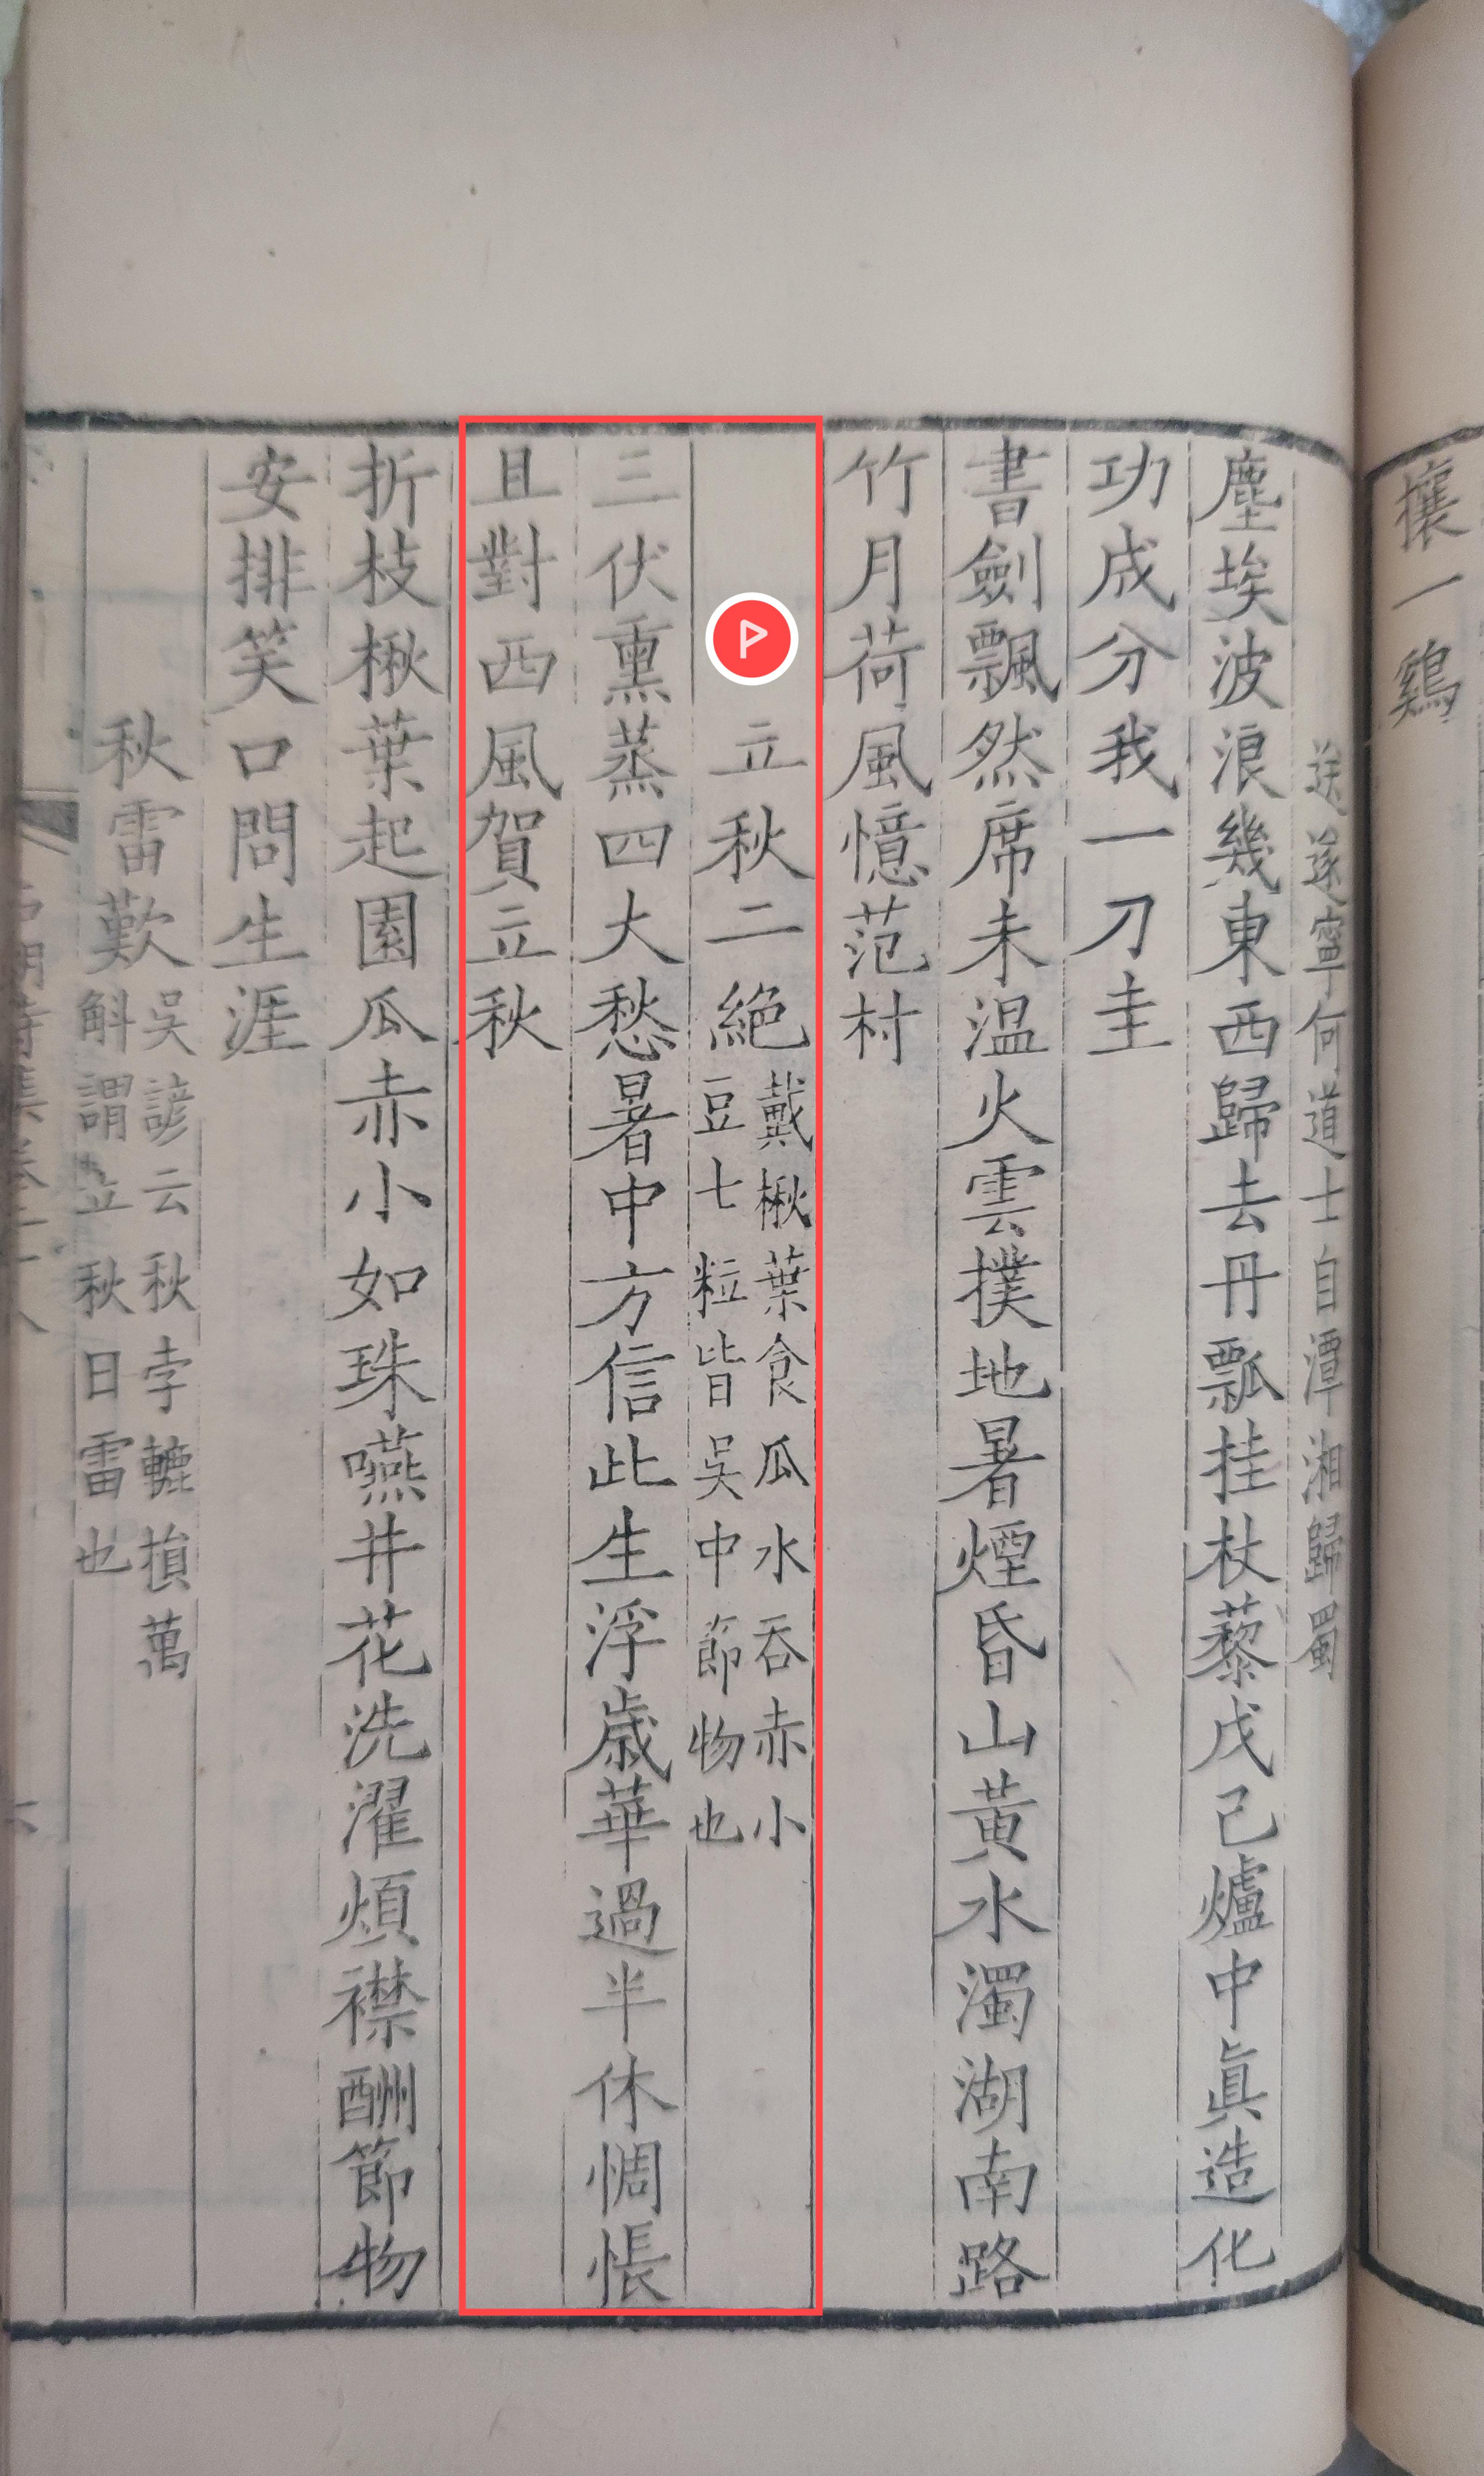 攘一鷄
送遂寧何道士自潭湘歸蜀
塵埃波浪幾東西歸去丹瓢挂杖藜戊己爐中眞造化
功成分我一刀圭
書劍飄然席未温火雲撲地暑煙昏山黃水濁湖南路
竹月荷風憶范村
立秋二絶戴楸葉食瓜水吞赤小
豆七粒皆吳中節物也
三伏熏蒸四大愁暑中方信此生浮歲華過半休惆悵
且對西風賀立秋
折枝楸葉起園瓜赤小如珠嚥井花洗濯煩襟酬節物
安排笑口問生涯
秋雷歎吳諺云秋孛轆損萬
斛謂立秋日雷也